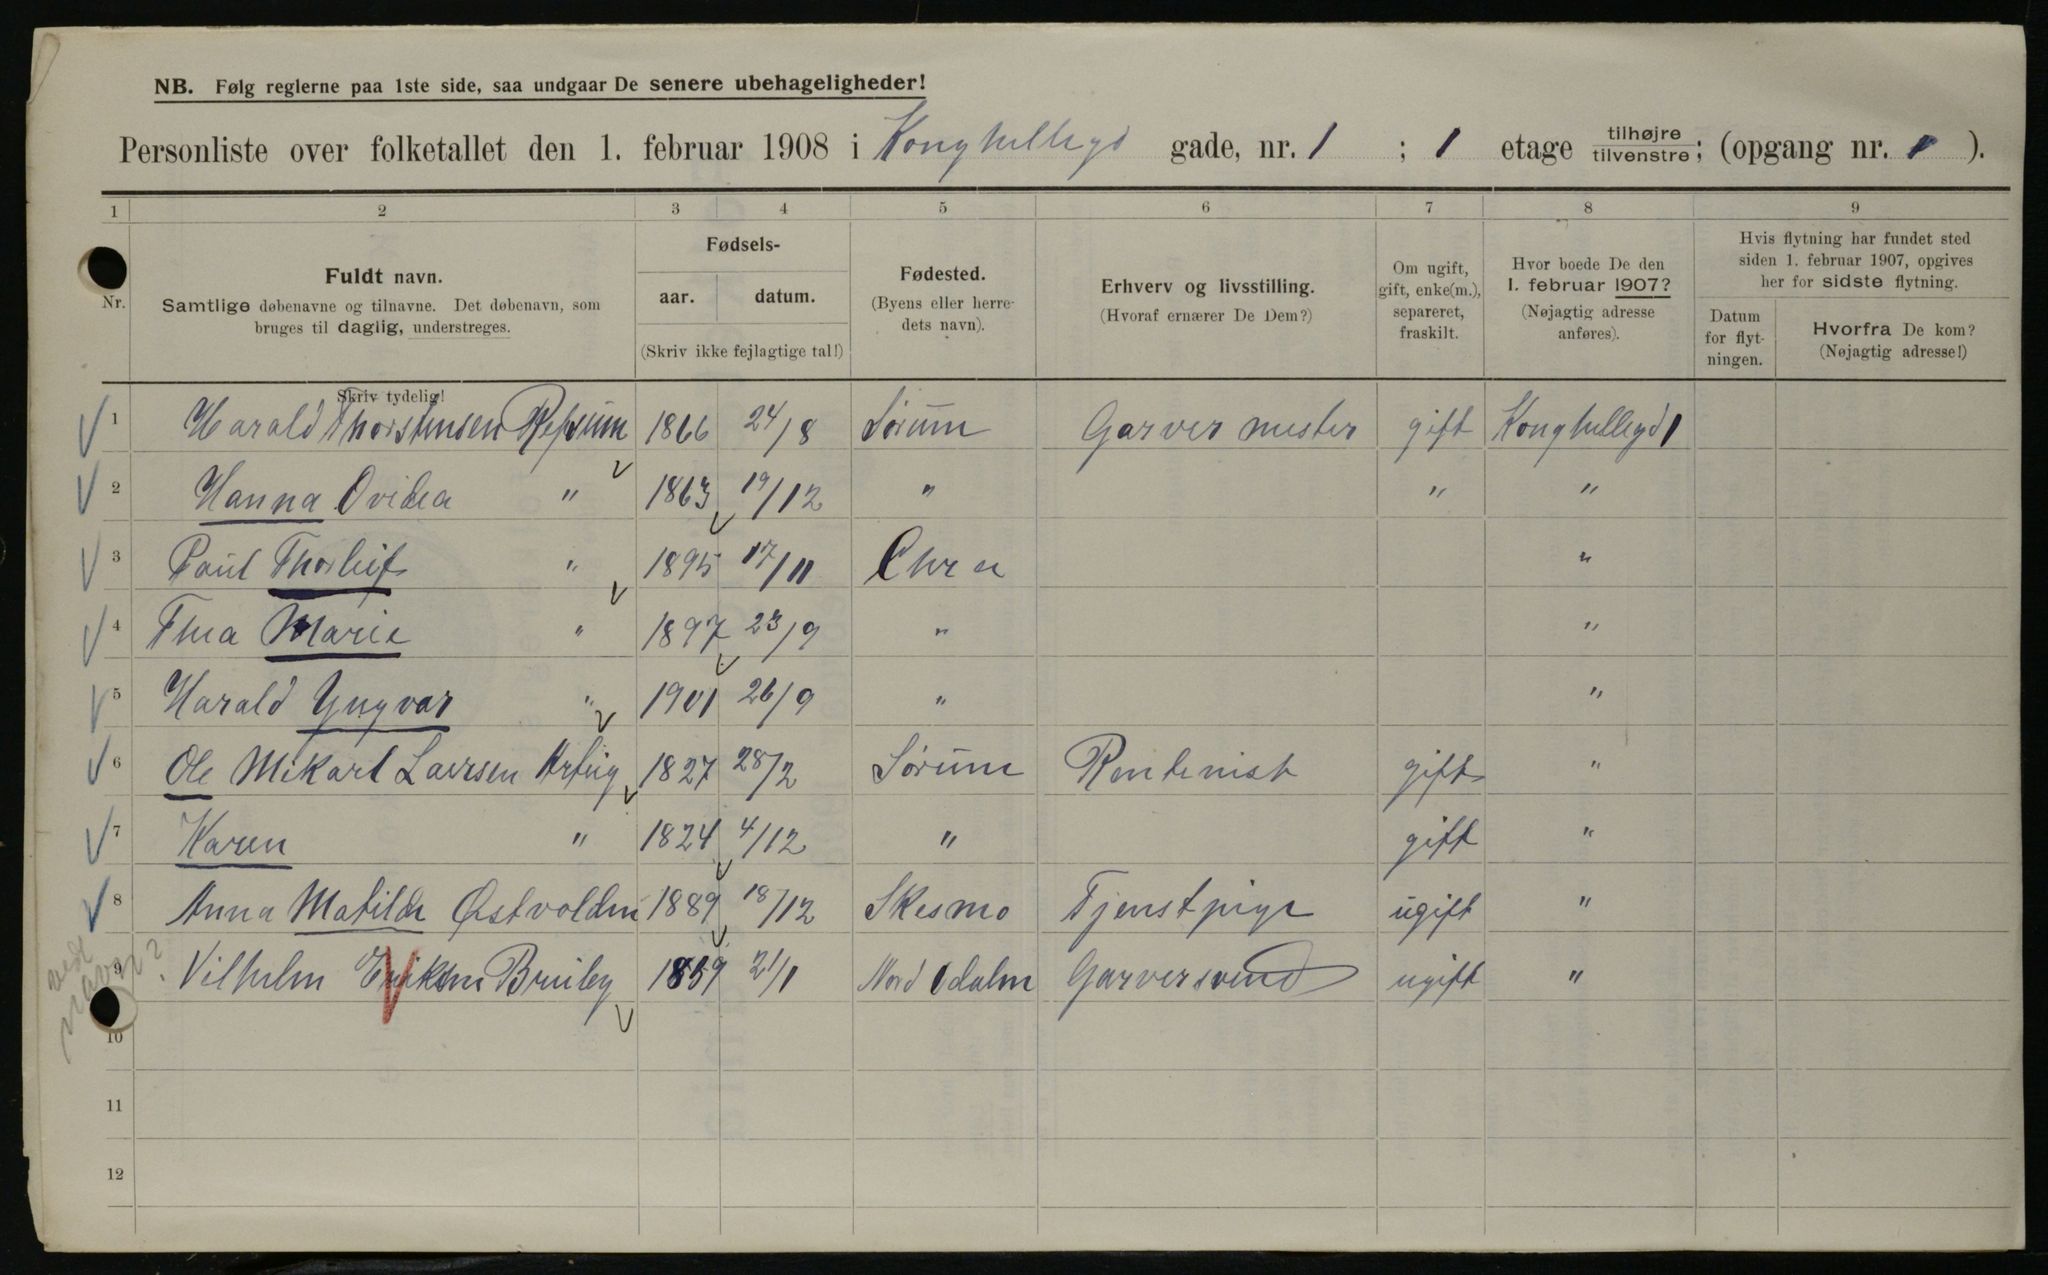 NB. Følg reglerne paa 1ste side, saa undgaar De senere ubehageligheder!
Personliste over folketallet den 1. februar 1908 i Konghellegd gade, nr. 1 ; 1 etage tilhøjre tilvenstre; (opgang nr. 1 ).
1 2 3 4 5 6 7 8 9
Nr.
Fuldt navn.
Samtlige døbenavne og tilnavne. Det døbenavn, som
bruges til daglig, understreges.
Skriv tydelig!
Fødsels-
aar. datum.
(Skriv ikke fejlagtige tal!)
Fødested.
(Byens eller herre-
dets navn).
Erhverv og livsstilling.
(Hvoraf ernærer De Dem?)
Om ugift,
gift, enke(m.),
separeret,
fraskilt.
Hvor boede De den
1. februar 1907?
(Nøjagtig adresse
anføres).
Hvis flytning har fundet sted
siden 1. februar 1907, opgives
her for sidste flytning.
Datum
for flyt-
ningen.
Hvorfra De kom?
(Nøjagtig adresse!)
1 Harald Thorstensen Refsum 1866 24/8 Sørum Garver mester gift Konghellegd 1
2 Hanna Ovidea " 1863 19/12 " " "
3 Paul Thorleif " 1895 17/11 Chr a "
4 Thea Marie " 1897 23/9 " "
5 Harald Yngvar " 1901 26/9 " "
6 Ole Mikael Larsen 1827 28/2 Sørum Rentenist gift "
7 Karen " 1824 4/12 " gift "
8 Anna Matilde Østvolden 1889 18/12 Skesmo Tjenstpige ugift "
9 Vilhelm 21/1 Nord Odalen Garversvend ugift "
10
11
12